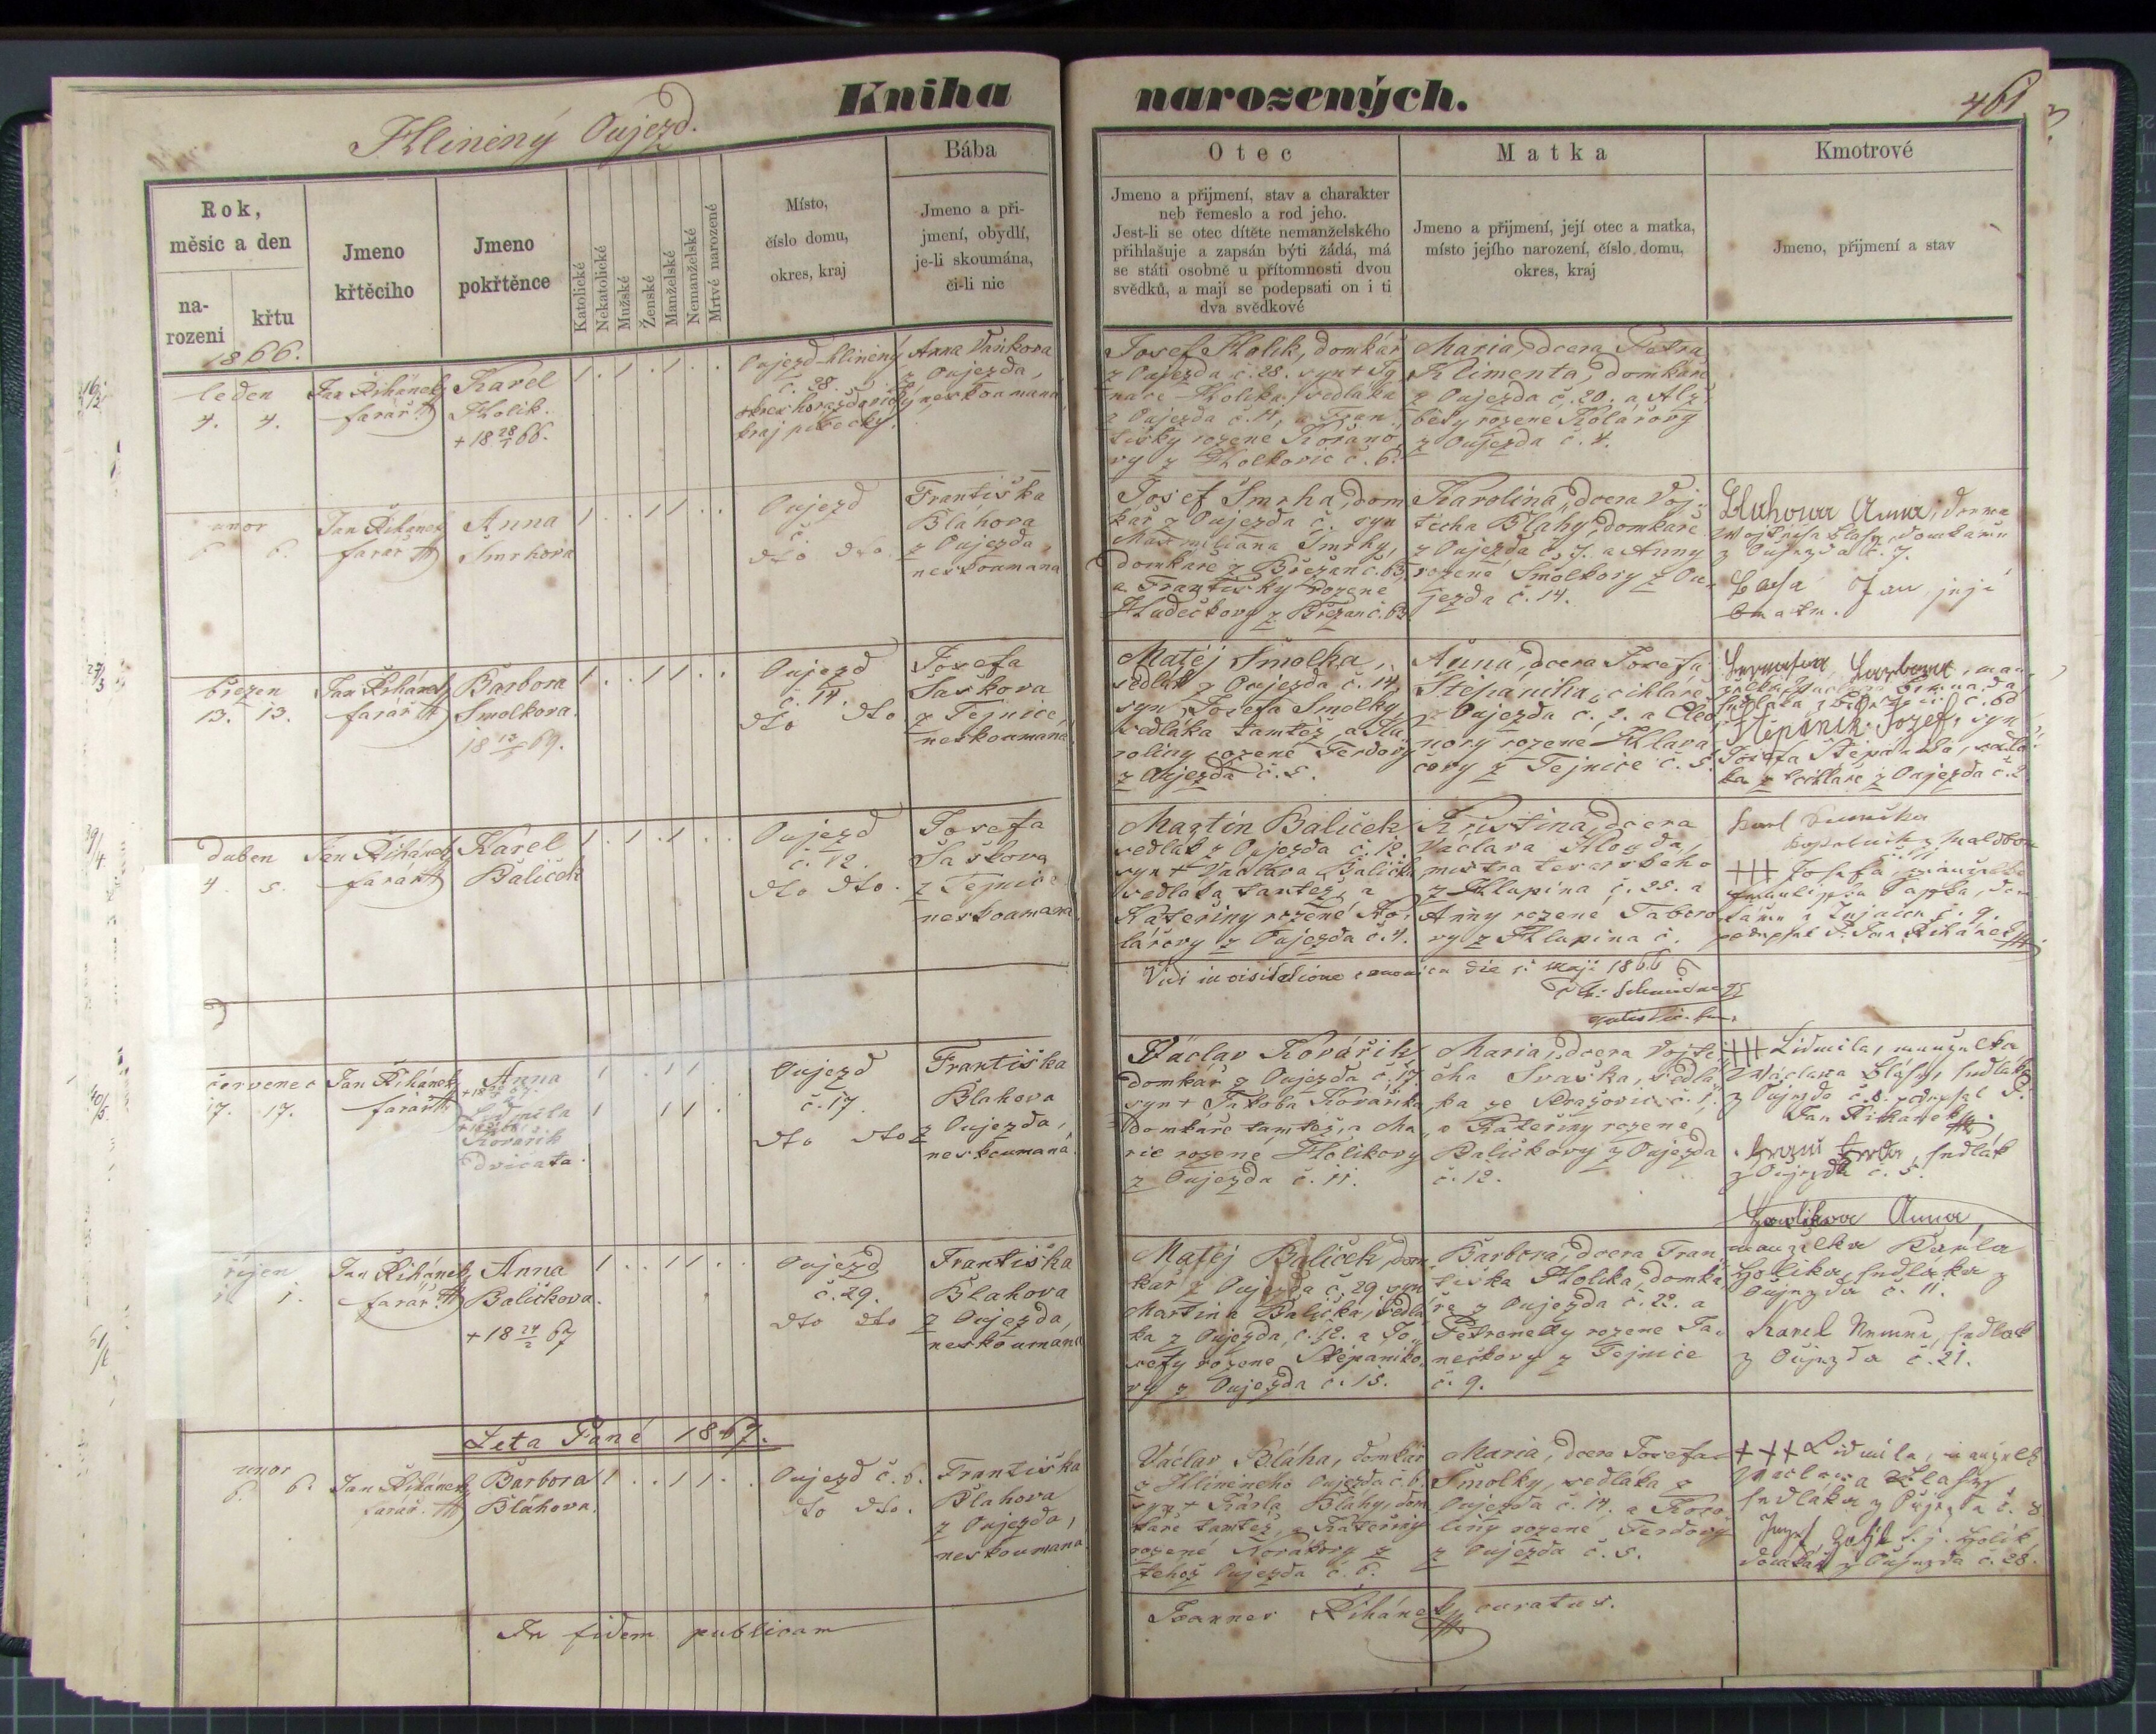 Kniha narozených.
Hlininý Oujezd.
461
Rok,
měsíc a den
na-
rození
křtu
Jmeno
křtěcího
Jmeno
pokřtěnce
Katolické
Nekatolické
Mužské
Ženské
Manželské
Nemanželské
Mrtvé narozené
Místo,
číslo domu,
okres, kraj
Bába
Jmeno a při-
jmení, obydlí,
je-li skoumána,
či-li nic
Otec
Jmeno a přijmení, stav a charakter
neb řemeslo a rod jeho.
Jest-li se otec dítěte nemanželského
přihlašuje a zapsán býti žádá, má
se státi osobně u přítomnosti dvou
svědků, a mají se podepsati on i ti
dva svědkové
Matka
Jmeno a přijmení, její otec a matka,
místo jejího narození, číslo domu,
okres, kraj
Kmotrové
Jmeno, přijmení a stav
1866.
leden
4. 4.
Jan Řihánek
farář
Karel
Holik.
+ 18 28/1 66.
Oujezd hlinený
č. 28.
okres horažďovický
kraj písecký.
Anna Vaňkova
z Oujezda,
neskoumána
Josef Holik, domkář
z Oujezda č. 28. syn + Ig
nace Holika, sedláka
z Oujezda č. 11, a Fran
tišky rozené Kořáno
vy z Holkovic č. 6.
Maria, dcera Petra
Klimenta, domkáře
z Oujezda č. 20. a Alž
běty rozené Kolářovy
z Oujezda č. 4.
unor
6 6.
Jan Řihánek
farář
Anna
Smrhova
Oujezd
č.
dto dto.
Františka
Bláhova
z Oujezda
neskoumána
Josef Smrha, dom
kář z Oujezda č. syn
Maxmiliána Smrhy,
domkáře z Břežan č. 63,
a Františky rozené
Hudečkovy z Břežan č. 63
Karolina, dcera Voj
těcha Bláhy, domkáře
z Oujezda č. 7. a Anny
rozené Smolkovy z Ou
jezda č. 14.
Blahowa Anna, dcerma
Wojtěcha Blahy, domkáře
z Oujezda č. 7.
Jan, její
březen
13. 13.
Jan Řihánek
farář
Barbora
Smolkova.
18 13/5 69.
Oujezd
č. 14.
dto dto
Josefa
Šaškova
z Tejnice,
neskoumána
Matěj Smolka,
sedlák z Oujezda č. 14,
syn Josefa Smolky,
sedláka tamtéž, a Ka
roliny rozené Ferdovy
z Oujezda č. 5.
Anna, dcera Josefa
Štěpánika, cihláře
z Oujezda č. 2. a Eleo
nory rozené Hlava
čovy z Tejnice č. 5.
Barbora, man
želka
Štěpánik Jozef, syn
Josefa Štěpánika, sedlá
ka a cihláře z Oujezda č. 2.
duben
4. 5.
Jan Řihánek
farář
Karel
Baliček
Oujezd
č. 12.
dto dto.
Josefa
Šaškova
z Tejnice
neskoumana
Martin Baliček
sedlák z Oujezda č. 12.
syn + Václava Balička
sedláka tamtéž, a
Kateřiny rozené Ko
lářovy z Oujezda č. 4.
Kristina, dcera
Václava Hloužka,
mistra tesařského
z Hlupína č. 25. a
Anny rozené Taboro
vy z Hlupína č.
+++ Josefa, manželka
podepsal P. Jan Řihánek
Vidi in visitatione canonica die 1. Maji 1866
červenec
17. 17.
Jan Řihánek
farář
Anna
Ludmila
Kovařik
dvičata.
Oujezd
č. 17.
dto dto
Františka
Blahova
z Oujezda,
neskoumaná
Václav Kovářik
domkář z Oujezda č. 17.
syn + Jakoba Kovářika
domkáře tamtéž, a Ma
rie rozené Holikovy
z Oujezda č. 11.
Maria, dcera Vojtě
cha Svaška, sedlá
ka ze Kražovic č. 1.
a Kateřiny rozené
Baličkovy z Oujezda
č. 12.
+++ Lidmila, manželka
Wáclawa Bláhy, sedláka
z Oujezda č. 8. podepsal P.
Jan Řihánek
sedlák
z Oujezda č. 5.
říjen
1. 1.
Jan Řihánek
farář
Anna
Baličkova.
+ 18 24/2 67
Oujezd
č. 29.
dto dto
Františka
Blahova
z Oujezda,
neskoumana
Matěj Baliček, dom
kář z Oujezda č. 29, syn
Martina Balička, sedlá
ka z Oujezda č. 12. a Jo
sefy rozené Štěpaniko
vy z Oujezda č. 15.
Barbora, dcera Fran
tiška Holika, domká
ře z Oujezda č. 22. a
Petronelly rozené Ja
nečkovy z Tejnice
č. 9.
Howlikowa Anna,
manželka Karla
Holika, sedláka z
Oujezda č. 11.
Karel Nemme, sedlák
z Oujezda č. 21.
Leta Páně 1867.
unor
6. 6.
Jan Řihánek
farář.
Barbora
Bláhova.
Oujezd č. 6.
dto dto.
Františka
Blahova
z Oujezda,
neskoumana
Václav Bláha, domkář
z Hlineného Oujezda č. 6.
syn + Karla Bláhy, dom
káře tamtéž, a Kateřiny
rozené Novákovy z
tehož Oujezda č. 6.
Maria, dcera Josefa
Smolky, sedláka z
Oujezda č. 14. a Karo
liny rozené Ferdovy
z Oujezda č. 5.
+++ Lidmila, manželka
Wáclawa Blahy
sedláka z Oujezda č. 8
s. j. Holik
domkář z Oujezda č. 28.
In fidem publicam
Joannes Řihánek, curatus.